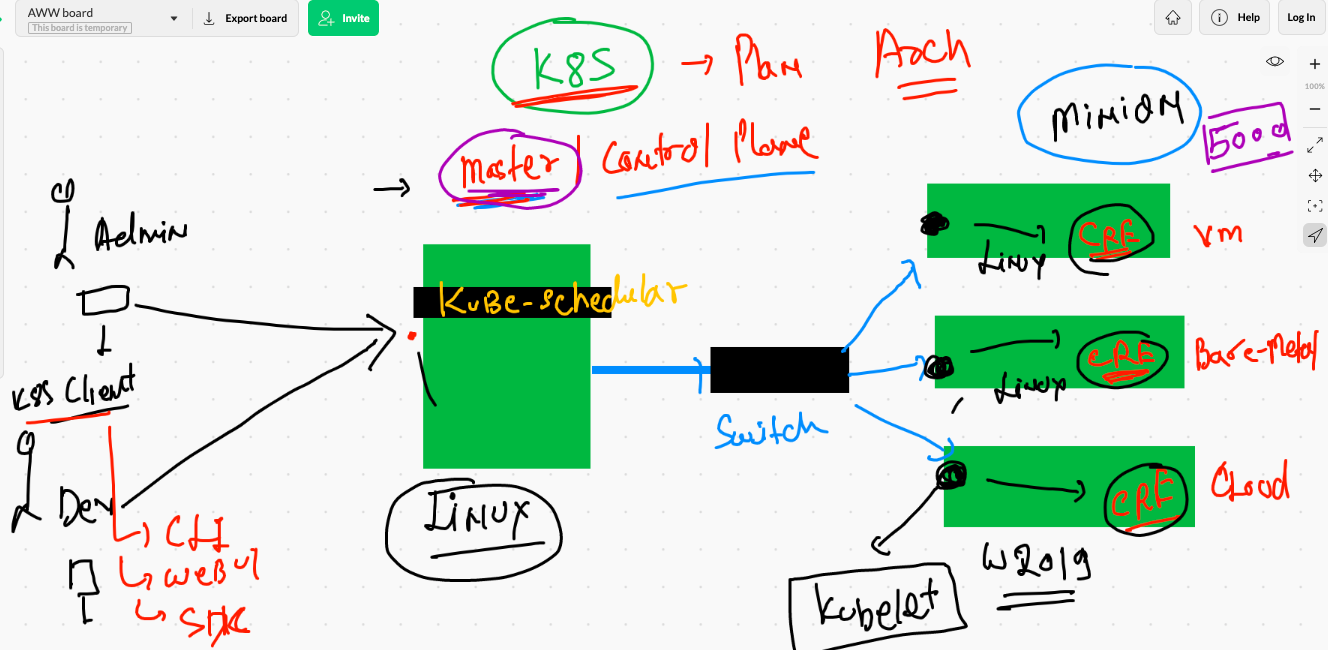 AWW board
This board is temporary
Export board
Invite
Help
Log In
100%
K8S → Plan
Arch
MiNiON
5000
→ Master | Control Plane
Admin
K8S Client
Dev
CLI
WEBUI
KuBe-Schedular
Linux
Switch
Linux
CRE
VM
Linux
CRE
Bare-Metal
CRE
Cloud
W2019
Kubelet